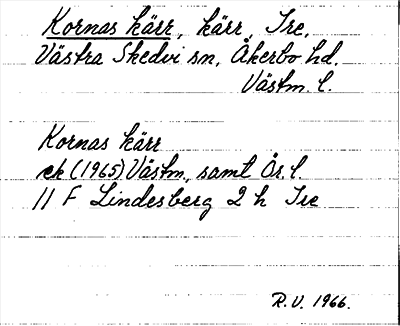 Kornas kärr, kärr, Tre,
Västra Skedvi sn, Åkerbo hd.
Västm. l.
Kornas kärr
ek (1965) Västm, samt Ör. l.
11 F Lindesberg 2 h Tre
R.V. 1966.